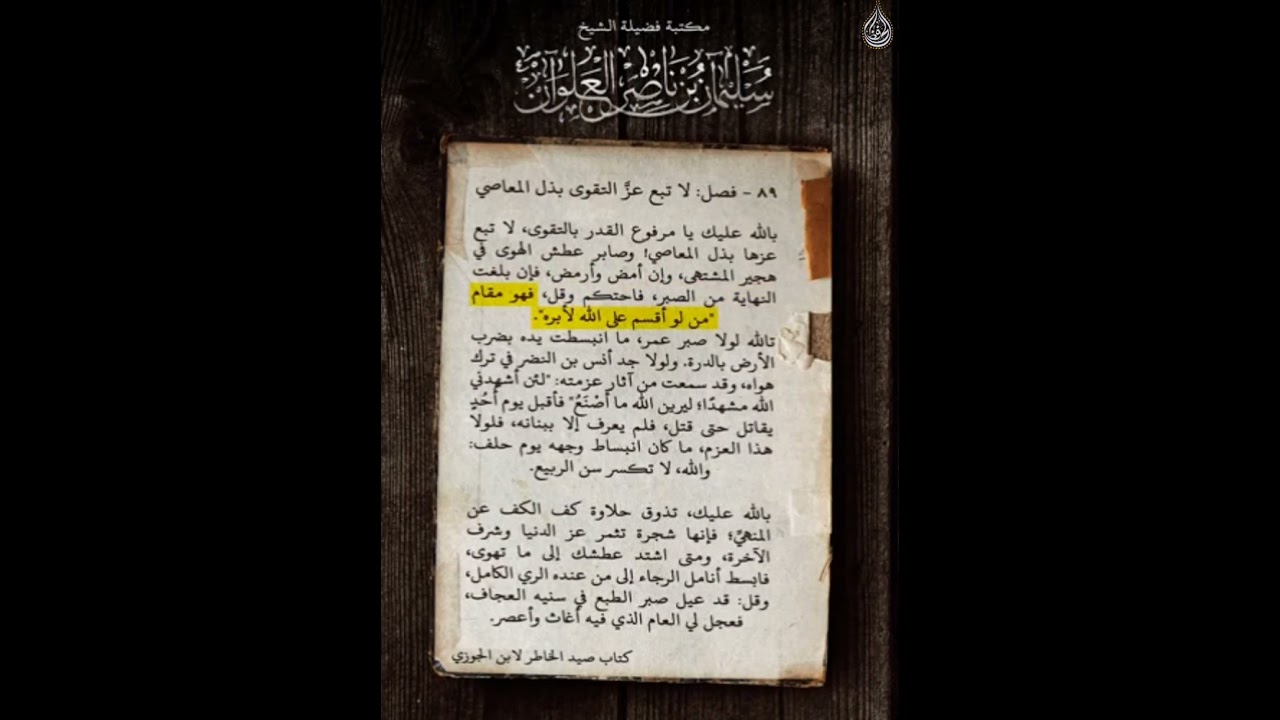 مكتبة فضيلة الشيخ
سليمان بن ناصر العلوان
٨٩ - فصل: لا تبع عزَّ التقوى بذل المعاصي
بالله عليك يا مرفوع القدر بالتقوى، لا تبع
عزها بذل المعاصي! وصابر عطش الهوى في
هجير المشتهى، وإن أمض وأرمض، فإن بلغت
النهاية من الصبر، فاحتكم وقل، فهو مقام
"من لو أقسم على الله لأبره".
تالله لولا صبر عمر، ما انبسطت يده بضرب
الأرض بالدرة. ولولا جد أنس بن النضر في ترك
هواه، وقد سمعت من آثار عزمته: "لئن أشهدني
الله مشهدًا؛ ليرين الله ما أصْنَعُ" فأقبل يوم أُحُدٍ
يقاتل حتى قتل، فلم يعرف إلا ببنانه، فلولا
هذا العزم، ما كان انبساط وجهه يوم حلف:
والله، لا تكسر سن الربيع.
بالله عليك، تذوق حلاوة كف الكف عن
المنهيِّ؛ فإنها شجرة تثمر عز الدنيا وشرف
الآخرة، ومتى اشتد عطشك إلى ما تهوى،
فابسط أنامل الرجاء إلى من عنده الري الكامل،
وقل: قد عيل صبر الطبع في سنيه العجاف،
فعجل لي العام الذي فيه أغاث وأعصر.
كتاب صيد الخاطر لابن الجوزي